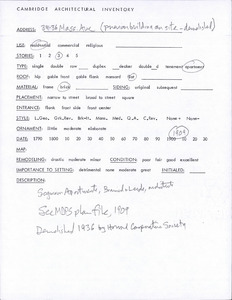 CAMBRIDGE ARCHITECTURAL INVENTORY
ADDRESS: Mass Ave (previous building on site - demolished)
USE: residential commercial religious
STORIES: 1 2 3 4 5 6
TYPE: single double row duplex decker double_d tenement apartment
ROOF: hip gable front gable flank mansard flat
MATERIAL: frame brick SIDING: original subsequent
PLACEMENT: narrow to street broad to street square
ENTRANCE: flank front side front center
STYLE: L.Geo. Grk.Rev. Mans. Med. Q.A. C.Rev. None
ORNAMENT: little moderate elaborate
DATE: 1790 1800 10 20 30 40 50 60 70 80 90 1900 10 20 1909
MAP:
REMODELING: drastic moderate minor CONDITION: poor fair good excellent
IMPORTANCE TO SETTING: detrimental none moderate great INITIALED:
DESCRIPTION:
Apartments, architects
See plan file, 1909
Demolished 1936 by Harvard Cooperative Society